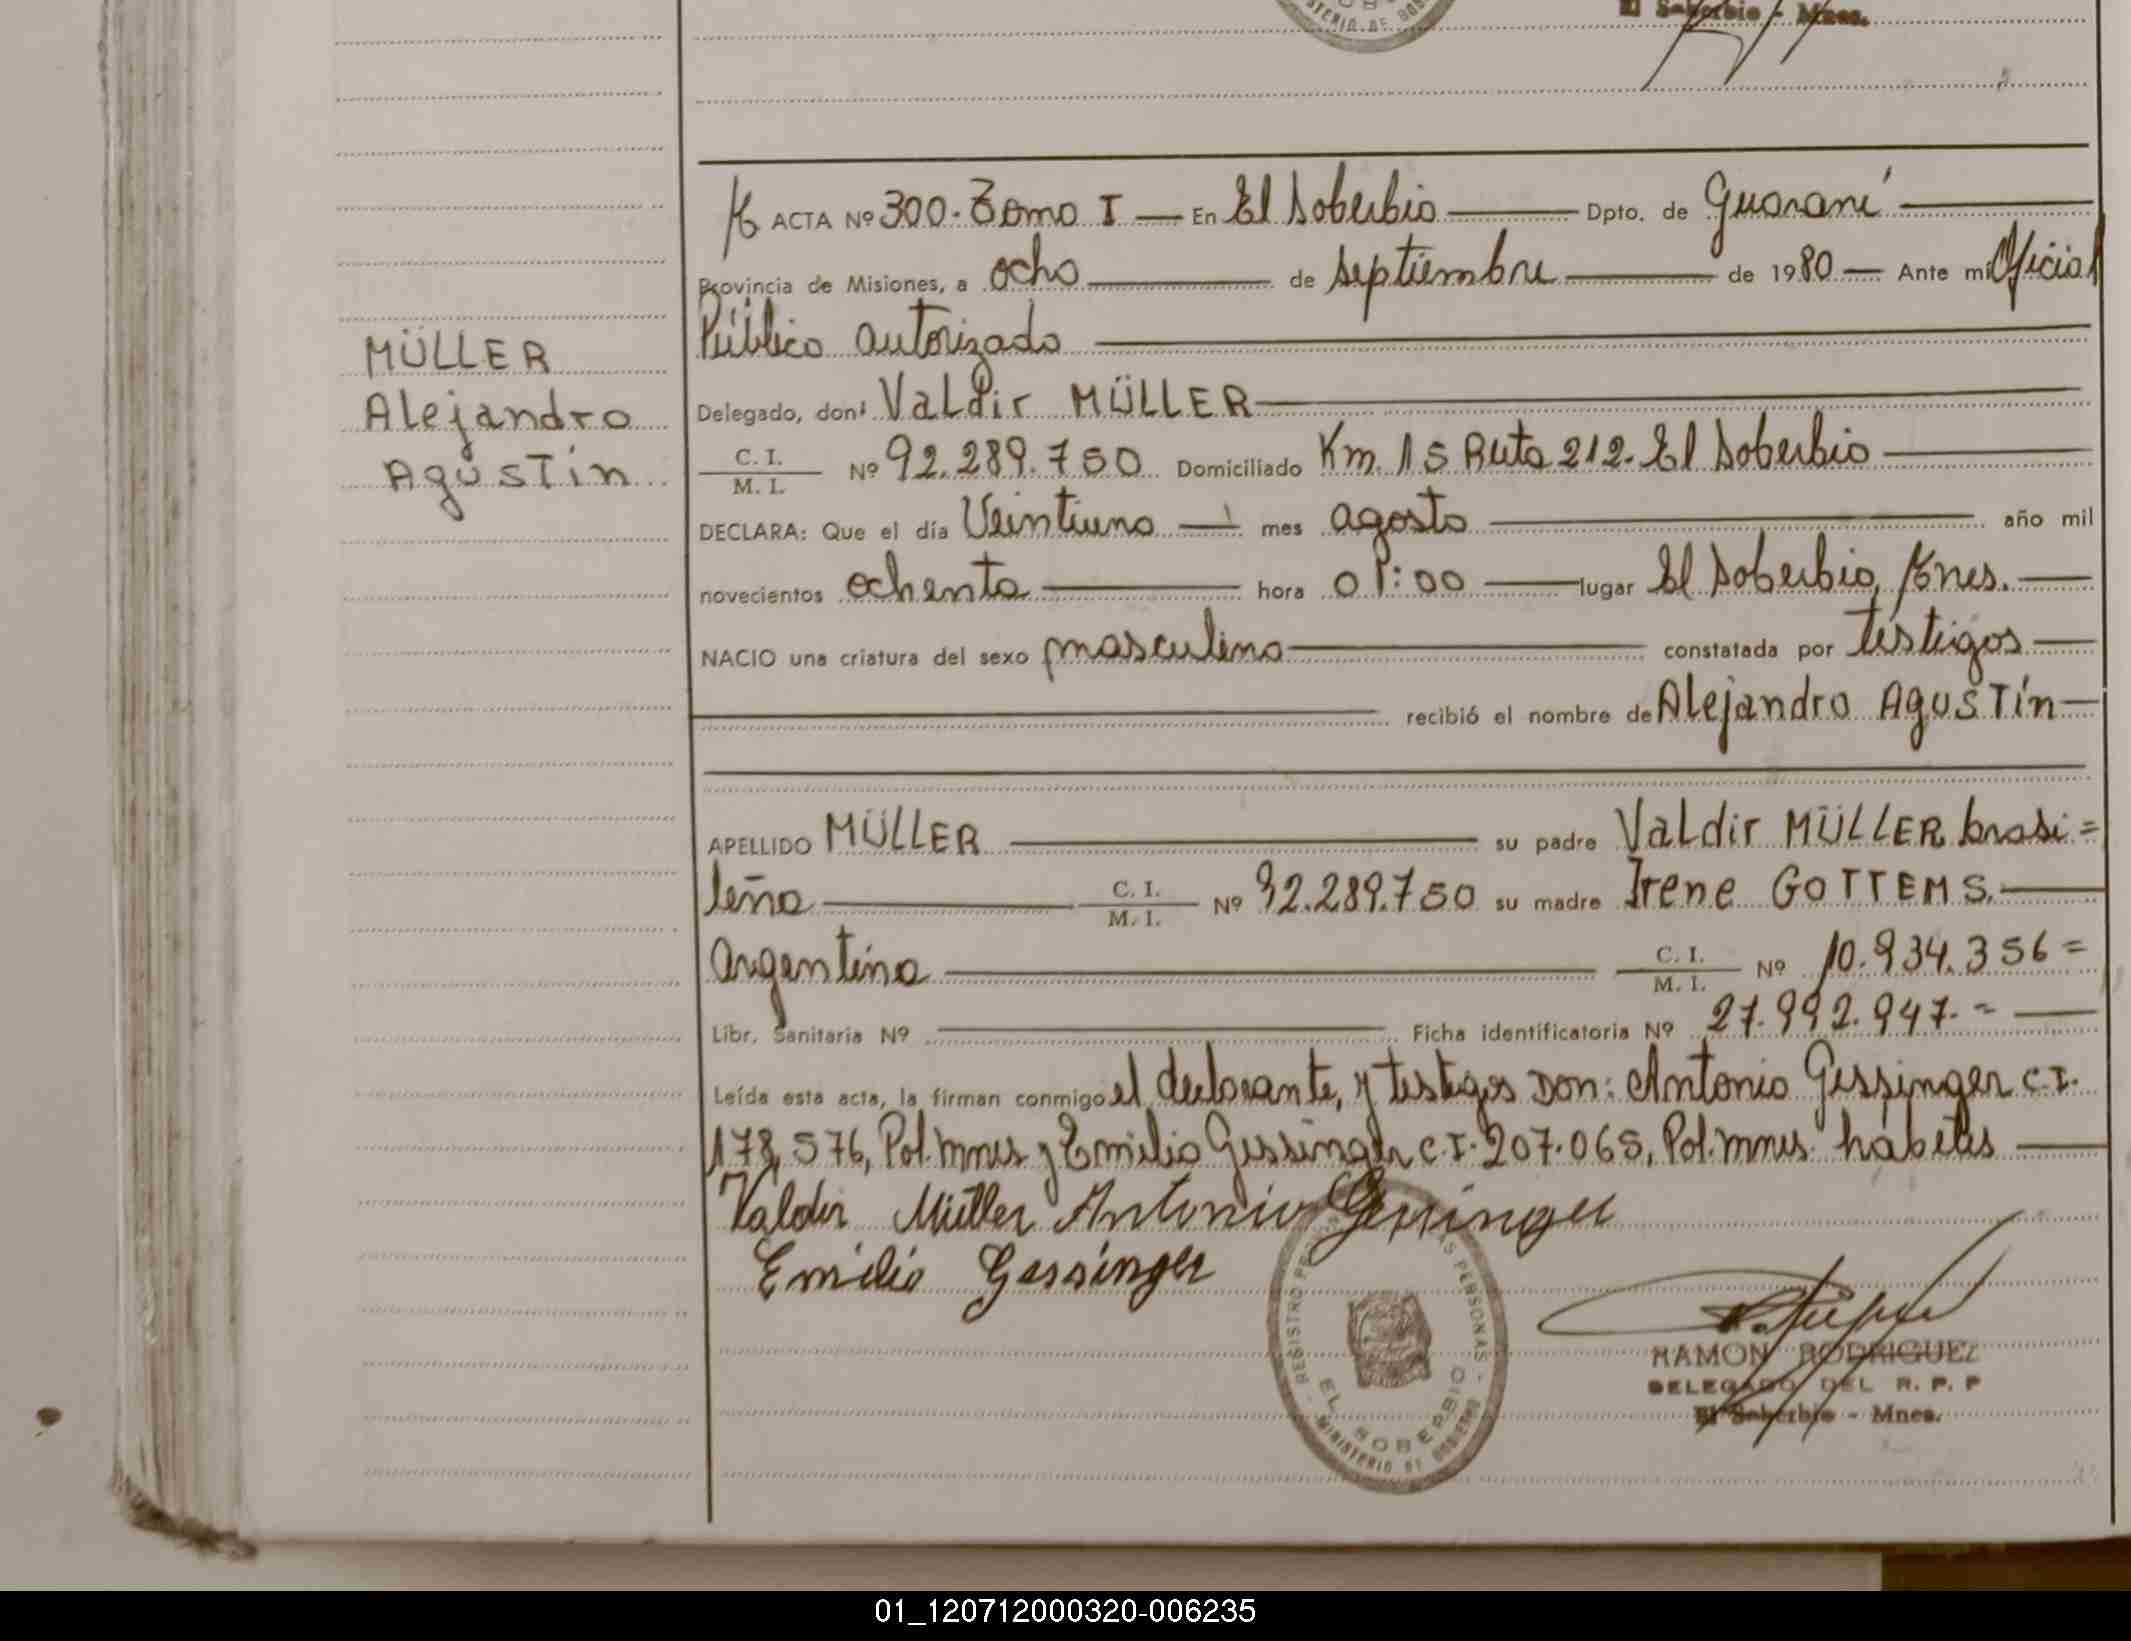 MINISTERIO DE GOB
El Soberbio - Mnes.
ACTA Nº 300. Tomo I — En El Soberbio — Dpto. de Guaraní —
Provincia de Misiones, a ocho — de septiembre — de 1980 — Ante mí Oficial
Público autorizado —
MÜLLER
Alejandro
Agustín
Delegado, don: Valdir MÜLLER —
C. I. / M. I. Nº 92.289.750 Domiciliado Km. 15 Ruta 212. El Soberbio —
DECLARA: Que el día Veintiuno — mes agosto — año mil
novecientos ochenta — hora 01:00 — lugar El Soberbio, Mnes. —
NACIO una criatura del sexo masculino — constatada por testigos —
— recibió el nombre de Alejandro Agustín —
APELLIDO MÜLLER — su padre Valdir MÜLLER brasi=
leño — C. I. / M. I. Nº 92.289.750 su madre Irene GOTTEMS. —
Argentina — C. I. / M. I. Nº 10.934.356=
Libr. Sanitaria Nº — Ficha identificatoria Nº 27.992.947.= —
Leída esta acta, la firman conmigo el declarante, y testigos Don: Antonio Gessinger C.I.
178,576, Pol. Mnes y Emilio Gessinger C.I. 207.065, Pol. Mnes. hábiles —
Valdir Müller Antonio Gessinger
Emilio Gessinger
REGISTRO PERSONAS
EL SOBERBIO
MINISTERIO DE GOBIERNO
RAMON RODRIGUEZ
DELEGADO DEL R. P. P
El Soberbio - Mnes.
01_120712000320-006235